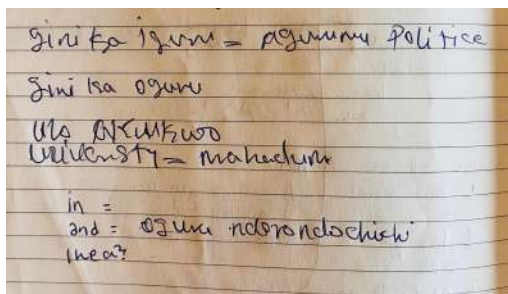 gini ka iguru = agummu Politice
gini ka oguru
Ulo AKWUKWO
University = mahadum
in =
and = oguru ndorondochichi